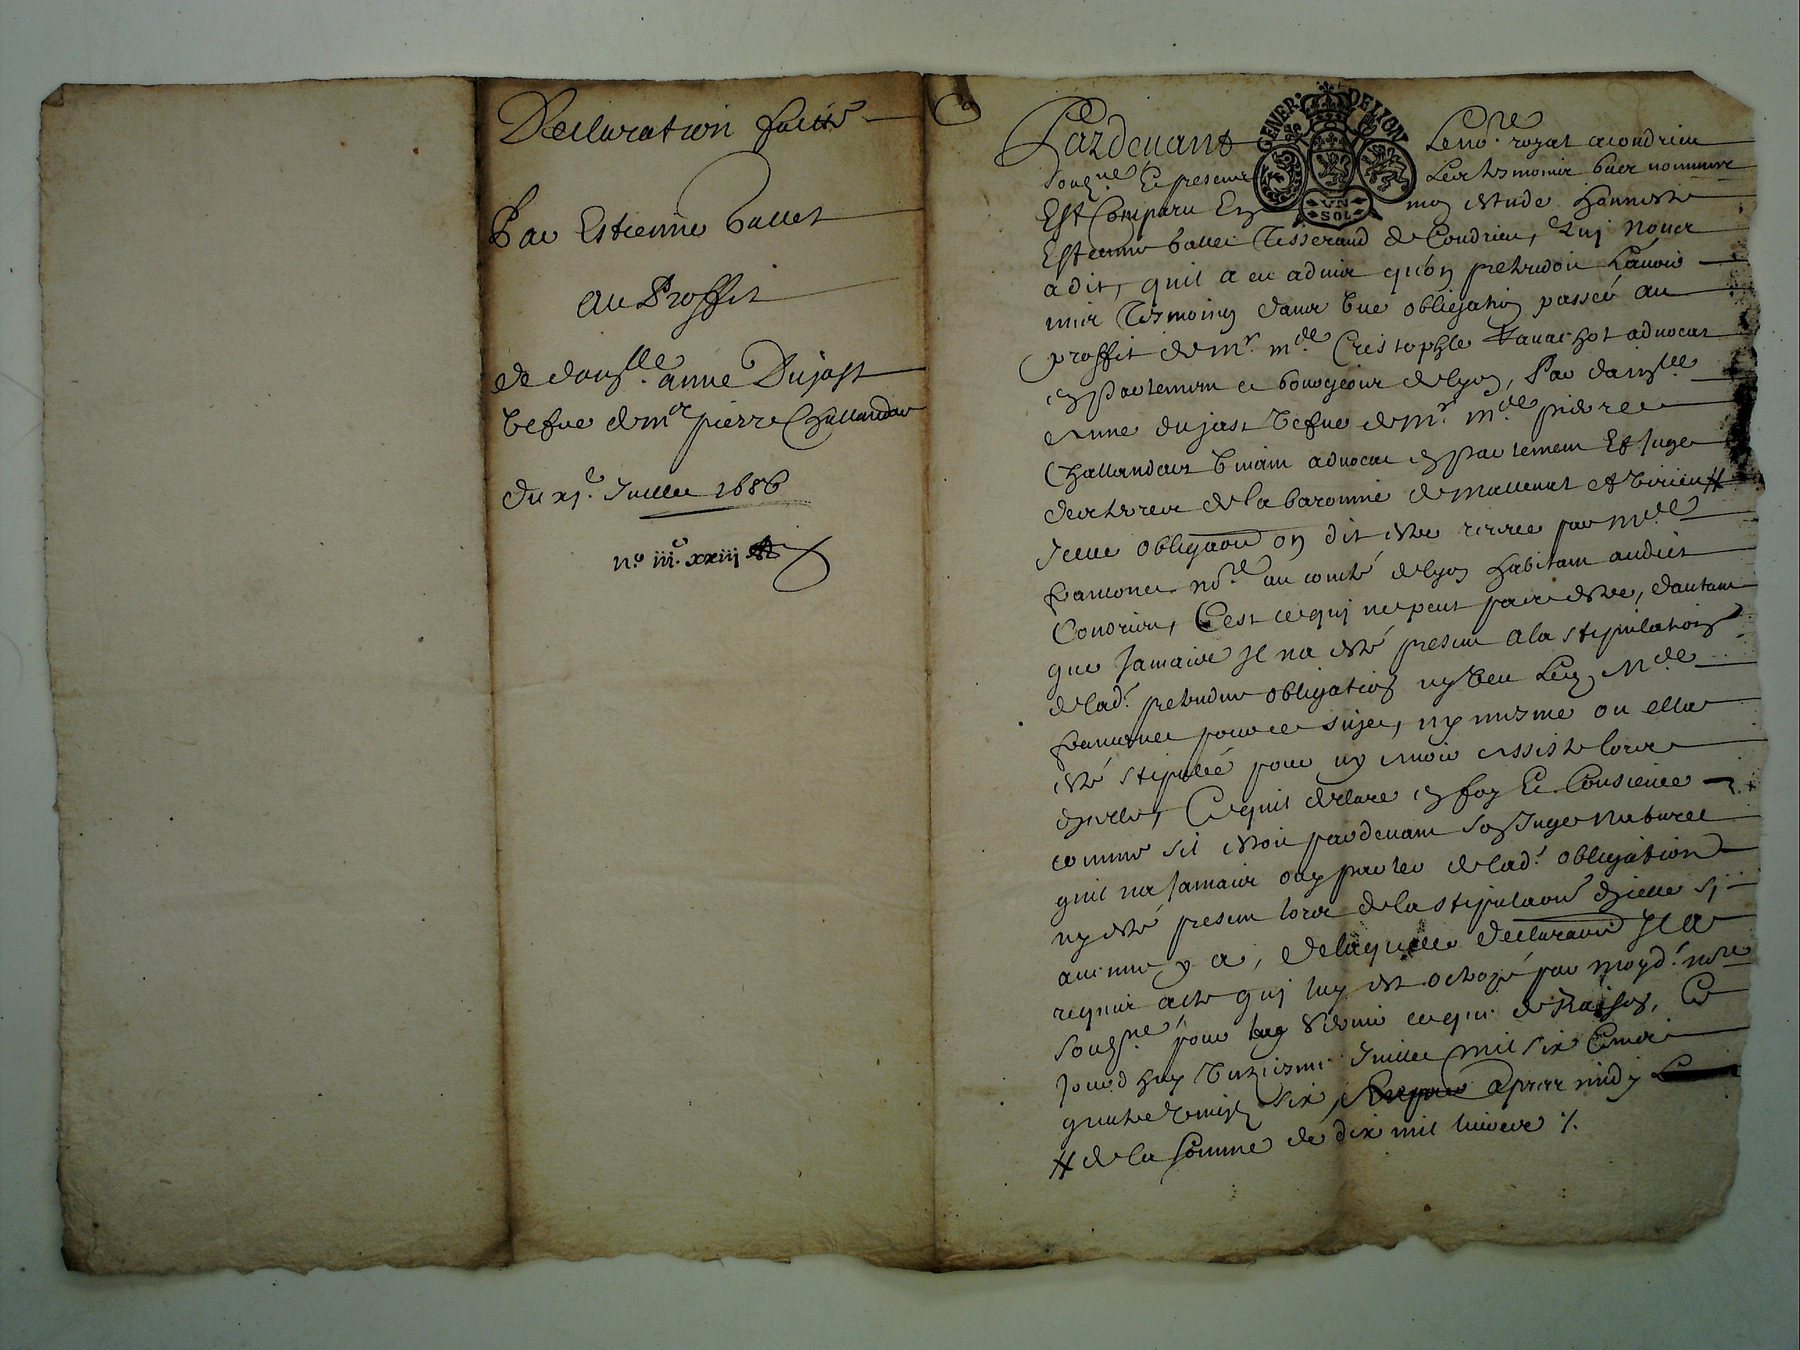 Declaration faitte
Par Estienne Ballet
au Proffit
de damlle. anne Dujast
vefve de mr pierre Challandar
du xje. Juillet 1686
no. iiic. xxiij
Pardevant Le nore. royal a condrieu
GENER. DE LYON
VN SOL
soubzne. Et presens Les tesmoins bas nommes
Est Comparu En mon estude honneste
Estienne ballet Tisserand de Condrieu, Lequel nous
a dit, quil a eu advis qu'on pretendoit Lavoir
mis Tesmoing dans une obligation passée au
proffit de mr. mre Cristophle advocat
en parlement et bourgeois de Lyon, Par damlle
Anne dujast vefve de mr. mre pierre
Challandar vivain advocat en parlement Et Juge
des terres de la baronnie de Mallevat et virieu #
Icelle obligaon on dit estre receue par mre
nore. au comté de Lyon habitant audict
Condrieu, C'est ce qui ne peut pas estre, dautant
que Jamais Il na esté present a la stipulation
de lad. pretendue obligation ny veu Led. Mre
pour ce sujet, ny mesme ou elle a
esté stipulée pour ny avoir assisté lors
d'icelle, Ce quil declare en foy Et Consience
comme sil estoit pardevant son Juge Naturel
quil na Jamais ouy parler de lad. obligation
ny esté present lors de la stipulaon d'icelle si
aucune y a, de laquelle declaraon Il a
requis acte qui luy est octroyé par moyd. nore
soubzne. pour luy servir ce que de Raison, Ce
jourd'huy unziesme Juillet mil six Cens
quatre vingt six, apres midy
# de la somme de dix mil livres %.